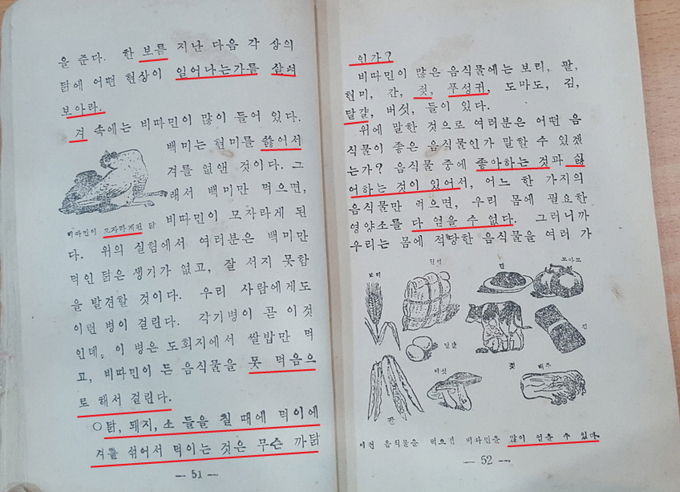 을 준다. 한 보름 지난 다음 각 상의
닭에 어떤 현상이 일어나는가를 살펴
보아라.
겨 속에는 비따민이 많이 들어 있다.
백미는 현미를 쓿어서
겨를 없앤 것이다. 그
래서 백미만 먹으면,
비따민이 모자라게 된 닭
비따민이 모자라게 된
다. 위의 실험에서 여러분은 백미만
먹인 닭은 생기가 없고, 잘 서지 못함
을 발견할 것이다. 우리 사람에게도
이런 병이 걸린다. 각기병이 곧 이것
인데, 이 병은 도회지에서 쌀밥만 먹
고, 비따민이 든 음식물을 못 먹음으
로 해서 걸린다.
○닭, 돼지, 소 들을 칠 때에 먹이에
겨를 섞어서 먹이는 것은 무슨 까닭
— 51 —
인가?
비따민이 많은 음식물에는 보리, 팥,
현미, 간, 젖, 푸성귀, 도마도, 김,
달걀, 버섯, 들이 있다.
위에 말한 것으로 여러분은 어떤 음
식물이 좋은 음식물인가 말할 수 있겠
는가? 음식물 중에 좋아하는 것과 싫
어하는 것이 있어서, 어느 한 가지의
음식물만 먹으면, 우리 몸에 필요한
영양소를 다 얻을 수 없다. 그러니까
우리는 몸에 적당한 음식물을 여러 가
보리
간
도마도
달걀
김
버섯
젖
배추
팥
이런 음식물을 먹으면 비따민을 많이 얻을 수 있다.
— 52 —